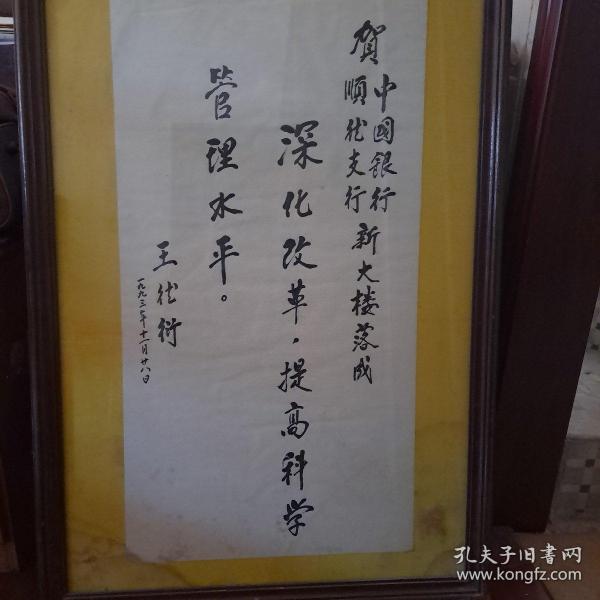 賀中國銀行
順德支行新大楼落成
深化改革，提高科学
管理水平。
王德衍
一九九三年十一月廿八日
孔夫子旧書网
www.kongfz.com